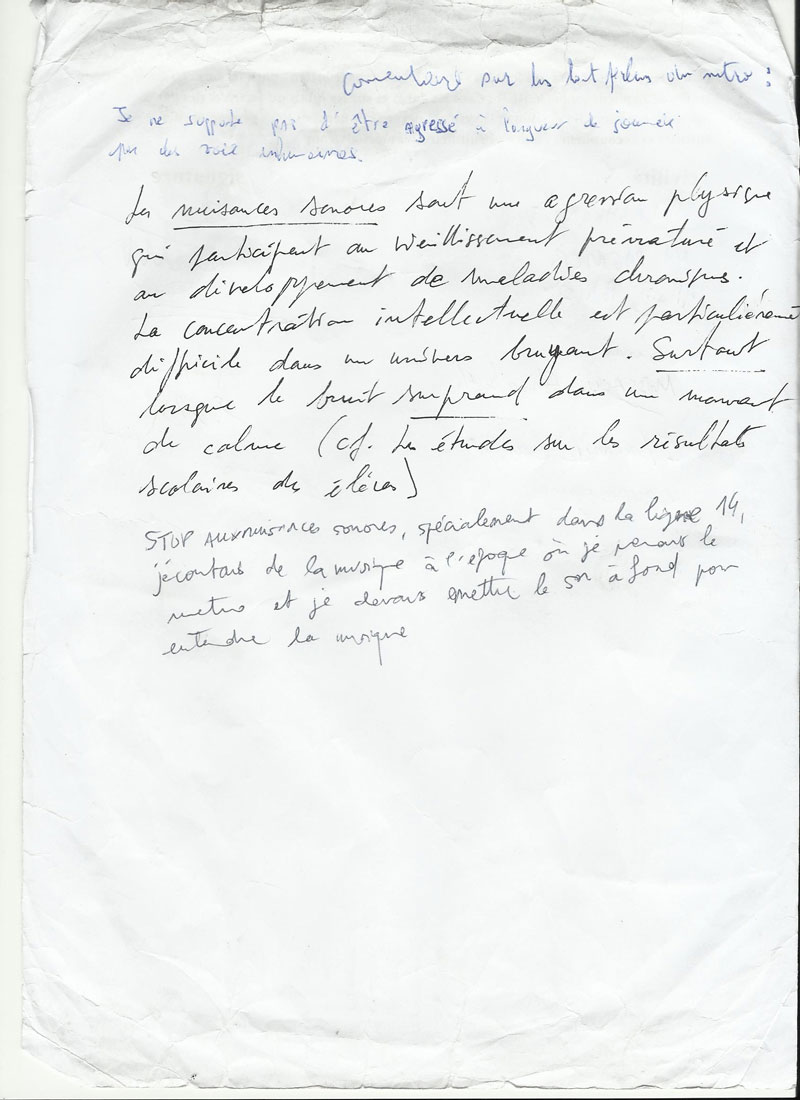 Commentaires sur les haut parleurs du metro :
Je ne supporte pas d'être agressé à longueur de journée
par des voix inhumaines.
Les nuisances sonores sont une agression physique
qui participent au vieillissement prématuré et
au développement de maladies chroniques.
La concentration intellectuelle est particulièrement
difficile dans un univers bruyant. Surtout
lorsque le bruit surprend dans un moment
de calme (cf. les études sur les résultats
scolaires des élèves)
STOP AUX nuisances sonores, spécialement dans la ligne 14,
j'écoutais de la musique à l'époque où je prenais le
metro et je devais mettre le son à fond pour
entendre la musique